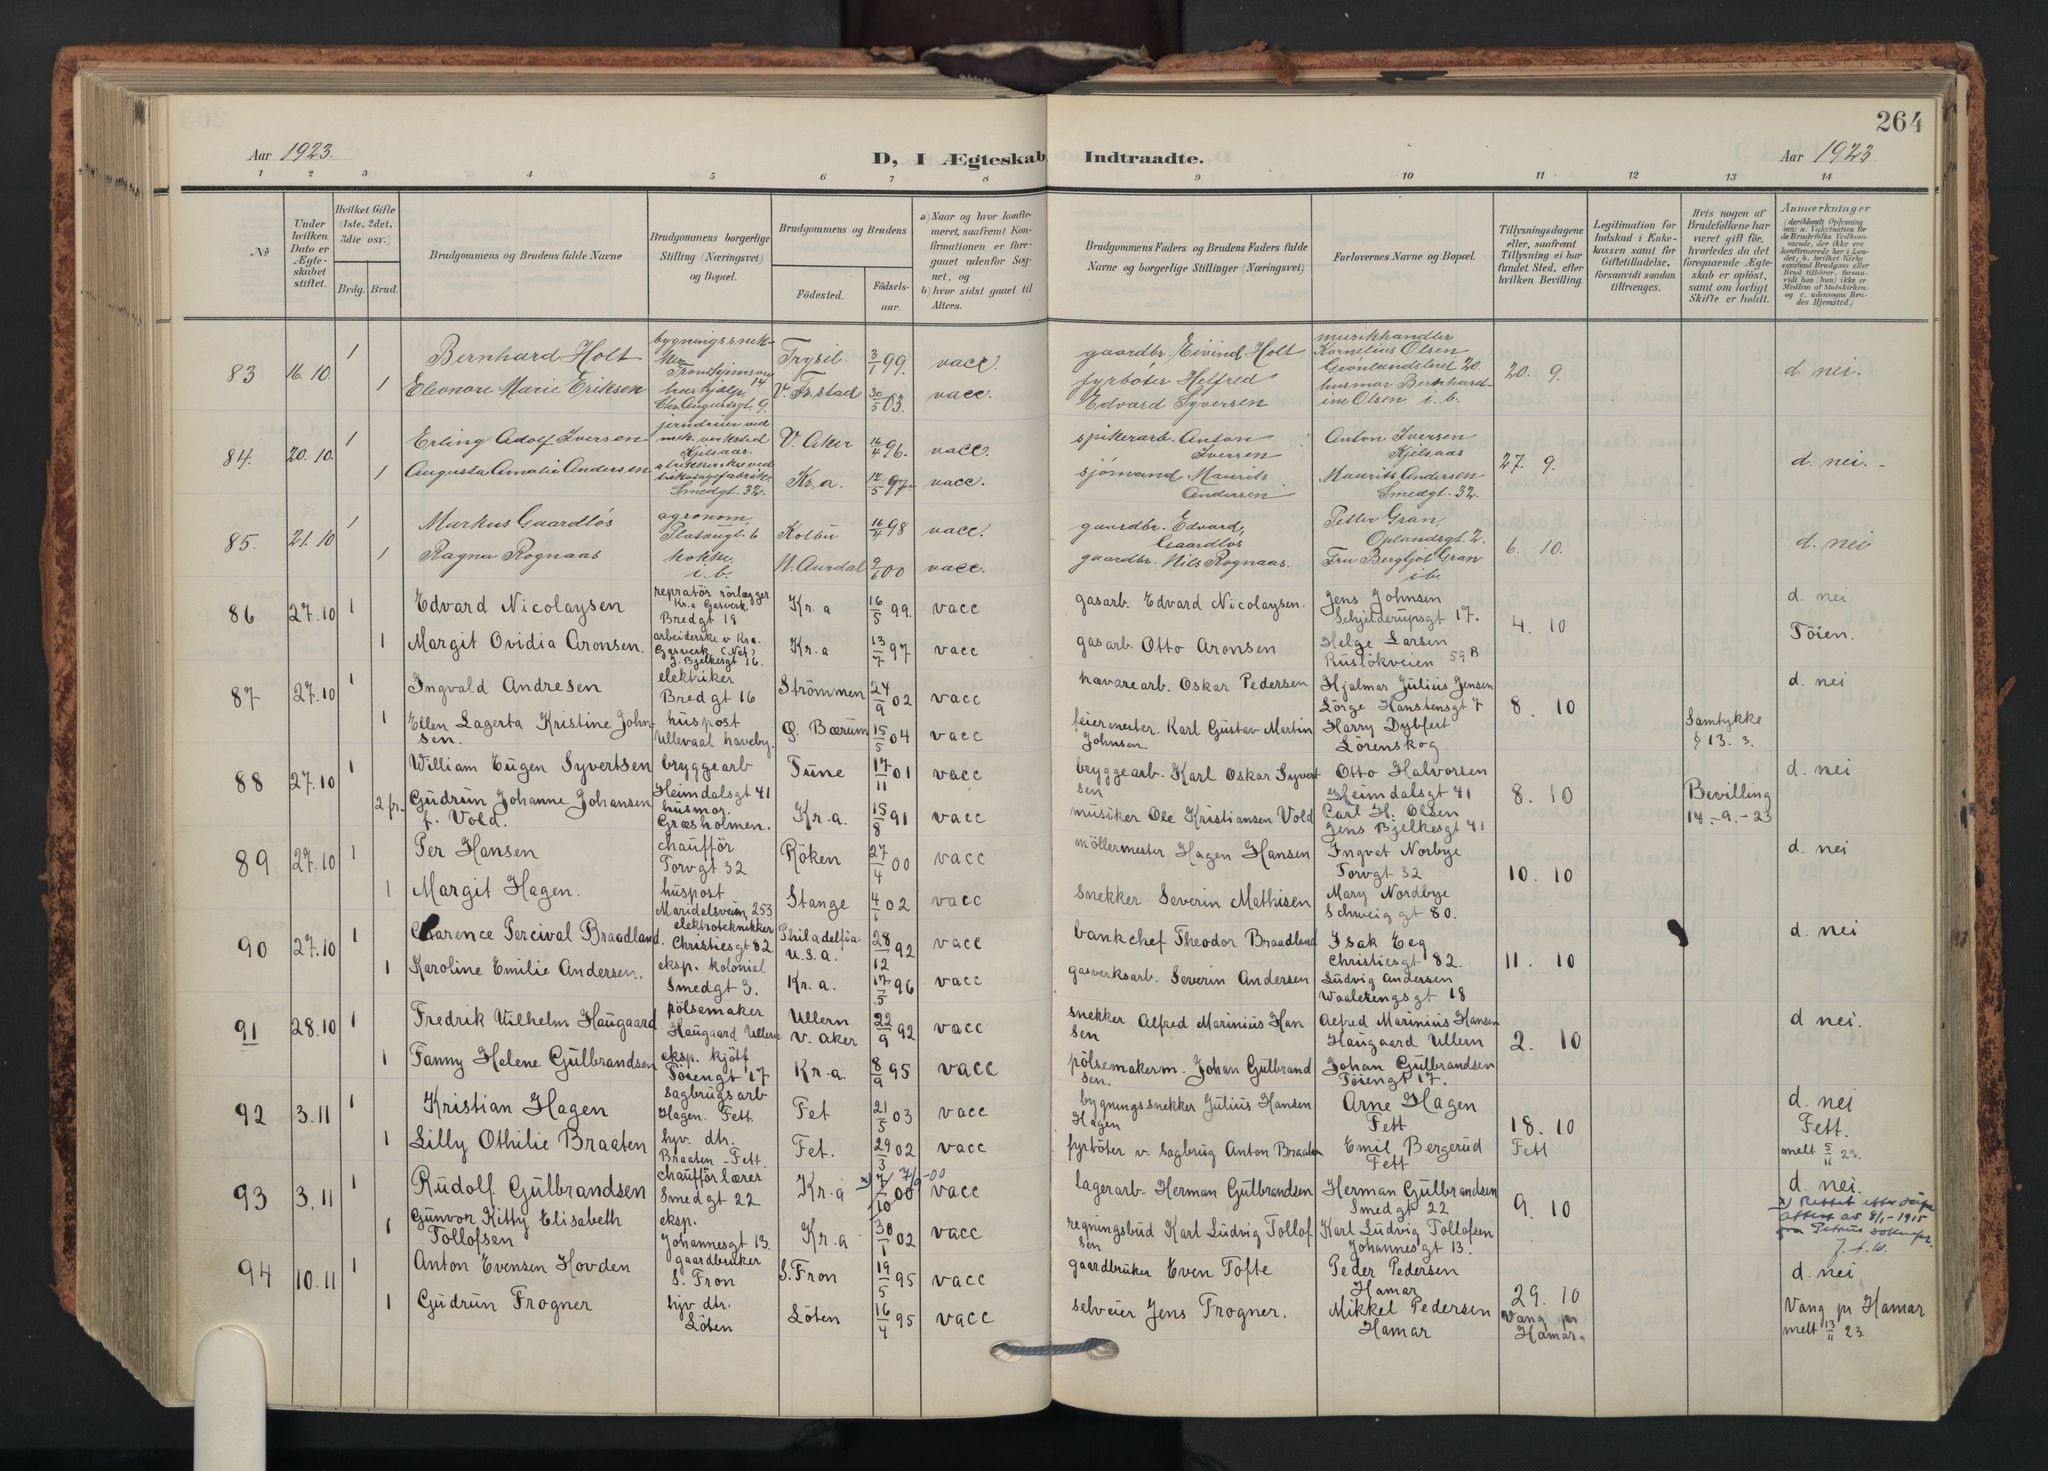 264
Aar 1923.
D, I Ægteskab Indtraadte.
Aar 1923
1 2 3 4 5 6 7 8 9 10 11 12 13 14
No
Under hvilken Dato er Ægteskabet stiftet.
Hvilket Gifte (1ste, 2det, 3die osv.)
Brdg. Brud.
Brudgommens og Brudens fulde Navne
Brudgommens borgerlige Stilling (Næringsvei) og Bopæl.
Brudgommens og Brudens
Fødested. Fødselsaar.
a) Naar og hvor konfirmeret, saafremt Konfirmationen er foregaaet udenfor Sognet, og
b) hvor sidst gaaet til Alters.
Brudgommens Faders og Brudens Faders fulde Navne og borgerlige Stillinger (Næringsvei)
Forlovernes Navne og Bopæl.
Tillysningsdagene eller, saafremt Tillysning ei har fundet Sted, efter hvilken Bevilling.
Legitimation for Indskud i Enkekassen samt for Giftetilladelse, forsaavidt saadan tiltrænges.
Hvis nogen af Brudefolkene har været gift før, hvorledes da det foregaaende Ægteskab er opløst, samt om lovligt Skifte er holdt.
Anmerkninger
83 16.10 1 Bernhard Holt Trysil. 3/1 99 vacc. gaardbr. Eivind Holt musikhandler Kornelius Olsen Grønlandsleret 20. 20. 9. d. nei.
1 Eleonore Marie Eriksen Chr. Augustsgt. 9. V. Fr.stad 30/5 03. vacc. fyrbøter Helfred Edvard Syversen husmor Bernhardine Olsen i. b.
84. 20.10. 1 Erling Adolf Iversen jerndreier ved mek. verksted Kjelsaas. V. Aker 16/4 96. vacc. spikerarb. Anton Iversen Anton Iversen Kjelsaas 27. 9. d. nei.
1 Augusta Amalie Andersen Smedgt. 32. Kr.a. 12/5 97 vacc. sjömand Maurits Andersen Maurits Andersen Smedgt. 32.
85. 21.10 1 Markus Gaardløs agronom, Kolbu 16/4 98 vacc. gaardbr. Edvard Gaardløs Petter Gran, Oplandsgt. 2. 6. 10. d. nei
1 Ragna Rognaas kokke, i. b. N. Aurdal 9/6 00 vacc. gaardbr. Nils Rognaas. Fru Bergljot Gran i b.
86 27.10 1 Edvard Nicolaysen repratör rörlægger Kr.a Gasverk Bredgt 18 Kr. a 16/5 99. vacc gasarb. Edvard Nicolaysen. Jens Johnsen Schjelderupsgt 17. 4. 10 d. nei
1 Margit Ovidia Aronsen. arbeiderske v Kra. Gasverk J. Bjelkesgt 16. Kr. a 13/7 97 vacc gasarb Otto Aronsen Helge Larsen Rüslökveien 59B Töien.
87 27.10 1 Ingvald Andresen elektriker Bredgt 16 Strömmen 24/9 02 vacc havarearb. Oskar Pedersen Hjalmar Julius Jensen Lörge Hanstensgt 7 8. 10 d. nei
1 Ellen Lagerta Kristine Johnsen. huspost Ullevaal haveby. Ø. Bærum 15/5 04 vacc feiermester. Karl Gustav Martin Johnsen Harry Dybfert Lörenskog Samtykke § 13. 3.
88 27.10 1 William Eugen Syvertsen bryggearb Heimdalsgt 41 Tune 17/11 01 vacc bryggearb. Karl Oskar Syvertsen Otto Halvorsen Heimdalsgt 41 8. 10 d. nei
2 fr. Gudrun Johanne Johansen f. Vold. husmor. Græsholmen. Kr. a. 15/8 91 vacc musiker Ole Kristiansen Vold Carl H. Olsen Jens Bjelkesgt 41 Bevilling 14.-9.-23
89 27.10 1 Per Hansen chaufför Torvgt 32 Röken 27/4 00 vacc möllermester Hagen Hansen Ingvat Norbye Torvgt 32 10. 10 d. nei
1 Margit Hagen. huspost Maridalsveien 253 Stange 02 vacc snekker Severin Mathisen Mary Nordbye Schweig gt 80.
90 27.10 1 Clarence Percival Braadland. elektroteknikker Christiesgt 82 Philadelfia U.S.A. 28/12 92 vacc bankchef Theodor Braadland Isak Eeg Christiesgt 82. 11. 10 d. nei
1 Karoline Emilie Andersen. eksp. kolonial Smedgt 3. Kr. a. 17/5 96 vacc gasverksarb. Severin Andersen Ludvig Andersen Waalerengsgt 18
91 28.10 1 Fredrik Vilhelm Haugaard pölsemaker Haugaard Ullern Ullern V. Aker 22/9 92 vacc snekker Alfred Marinius Hansen Alfred Marinius Hansen Haugaard Ullern 2. 10 d nei.
1 Fanny Helene Gulbrandsen eksp. kjött Töiengt 17 Kr. a. 8/9 95 vacc pölsemakerm. Johan Gulbrandsen. Johan Gulbrandsen Töiengt 17.
92 3.11 1 Kristian Hagen sagbrugsarb Hagen. Fett. Fet 21/5 03 vacc bygningssnekker Julius Hansen Hagen Arne Hagen Fett 18. 10 Fett d. nei Fett.
1 Lilly Othilie Braaten hjv. dtr. Braaten - Fett. Fet. 29/3 02 vacc fyrböter v. Sagbrug Anton Braaten Emil Bergerud Fett melt 5/11 23.
93 3.11 1 Rudolf Gulbrandsen chaufförlærer Smedgt 22 Kr. a 00 vacc lagerarb. Herman Gulbrandsen Herman Gulbrandsen Smedgt 22 9. 10 d. nei.
x) Rettet efter attest av 8/1-1915 fra Petrus
1 Gunvor Kitty Elisabeth Tollofsen eksp. Johannesgt 13. Kr. a 30/1 02 vacc regningsbud Karl Ludvig Tollofsen Karl Ludvig Tollofsen Johannesgt 13.
94 10.11 1 Anton Evensen Hovden gaardbruker S. Fron S. Fron 19/5 95 vacc gaardbruker Even Tofte Peder Pedersen Hamar 29. 10 Vang pr Hamar. d. nei
1 Gudrun Frogner hjv dtr. Löten Löten 16/4 95 vacc selveier Jens Frogner. Mikkel Pedersen Hamar Vang pr Hamar melt 13/11 23.